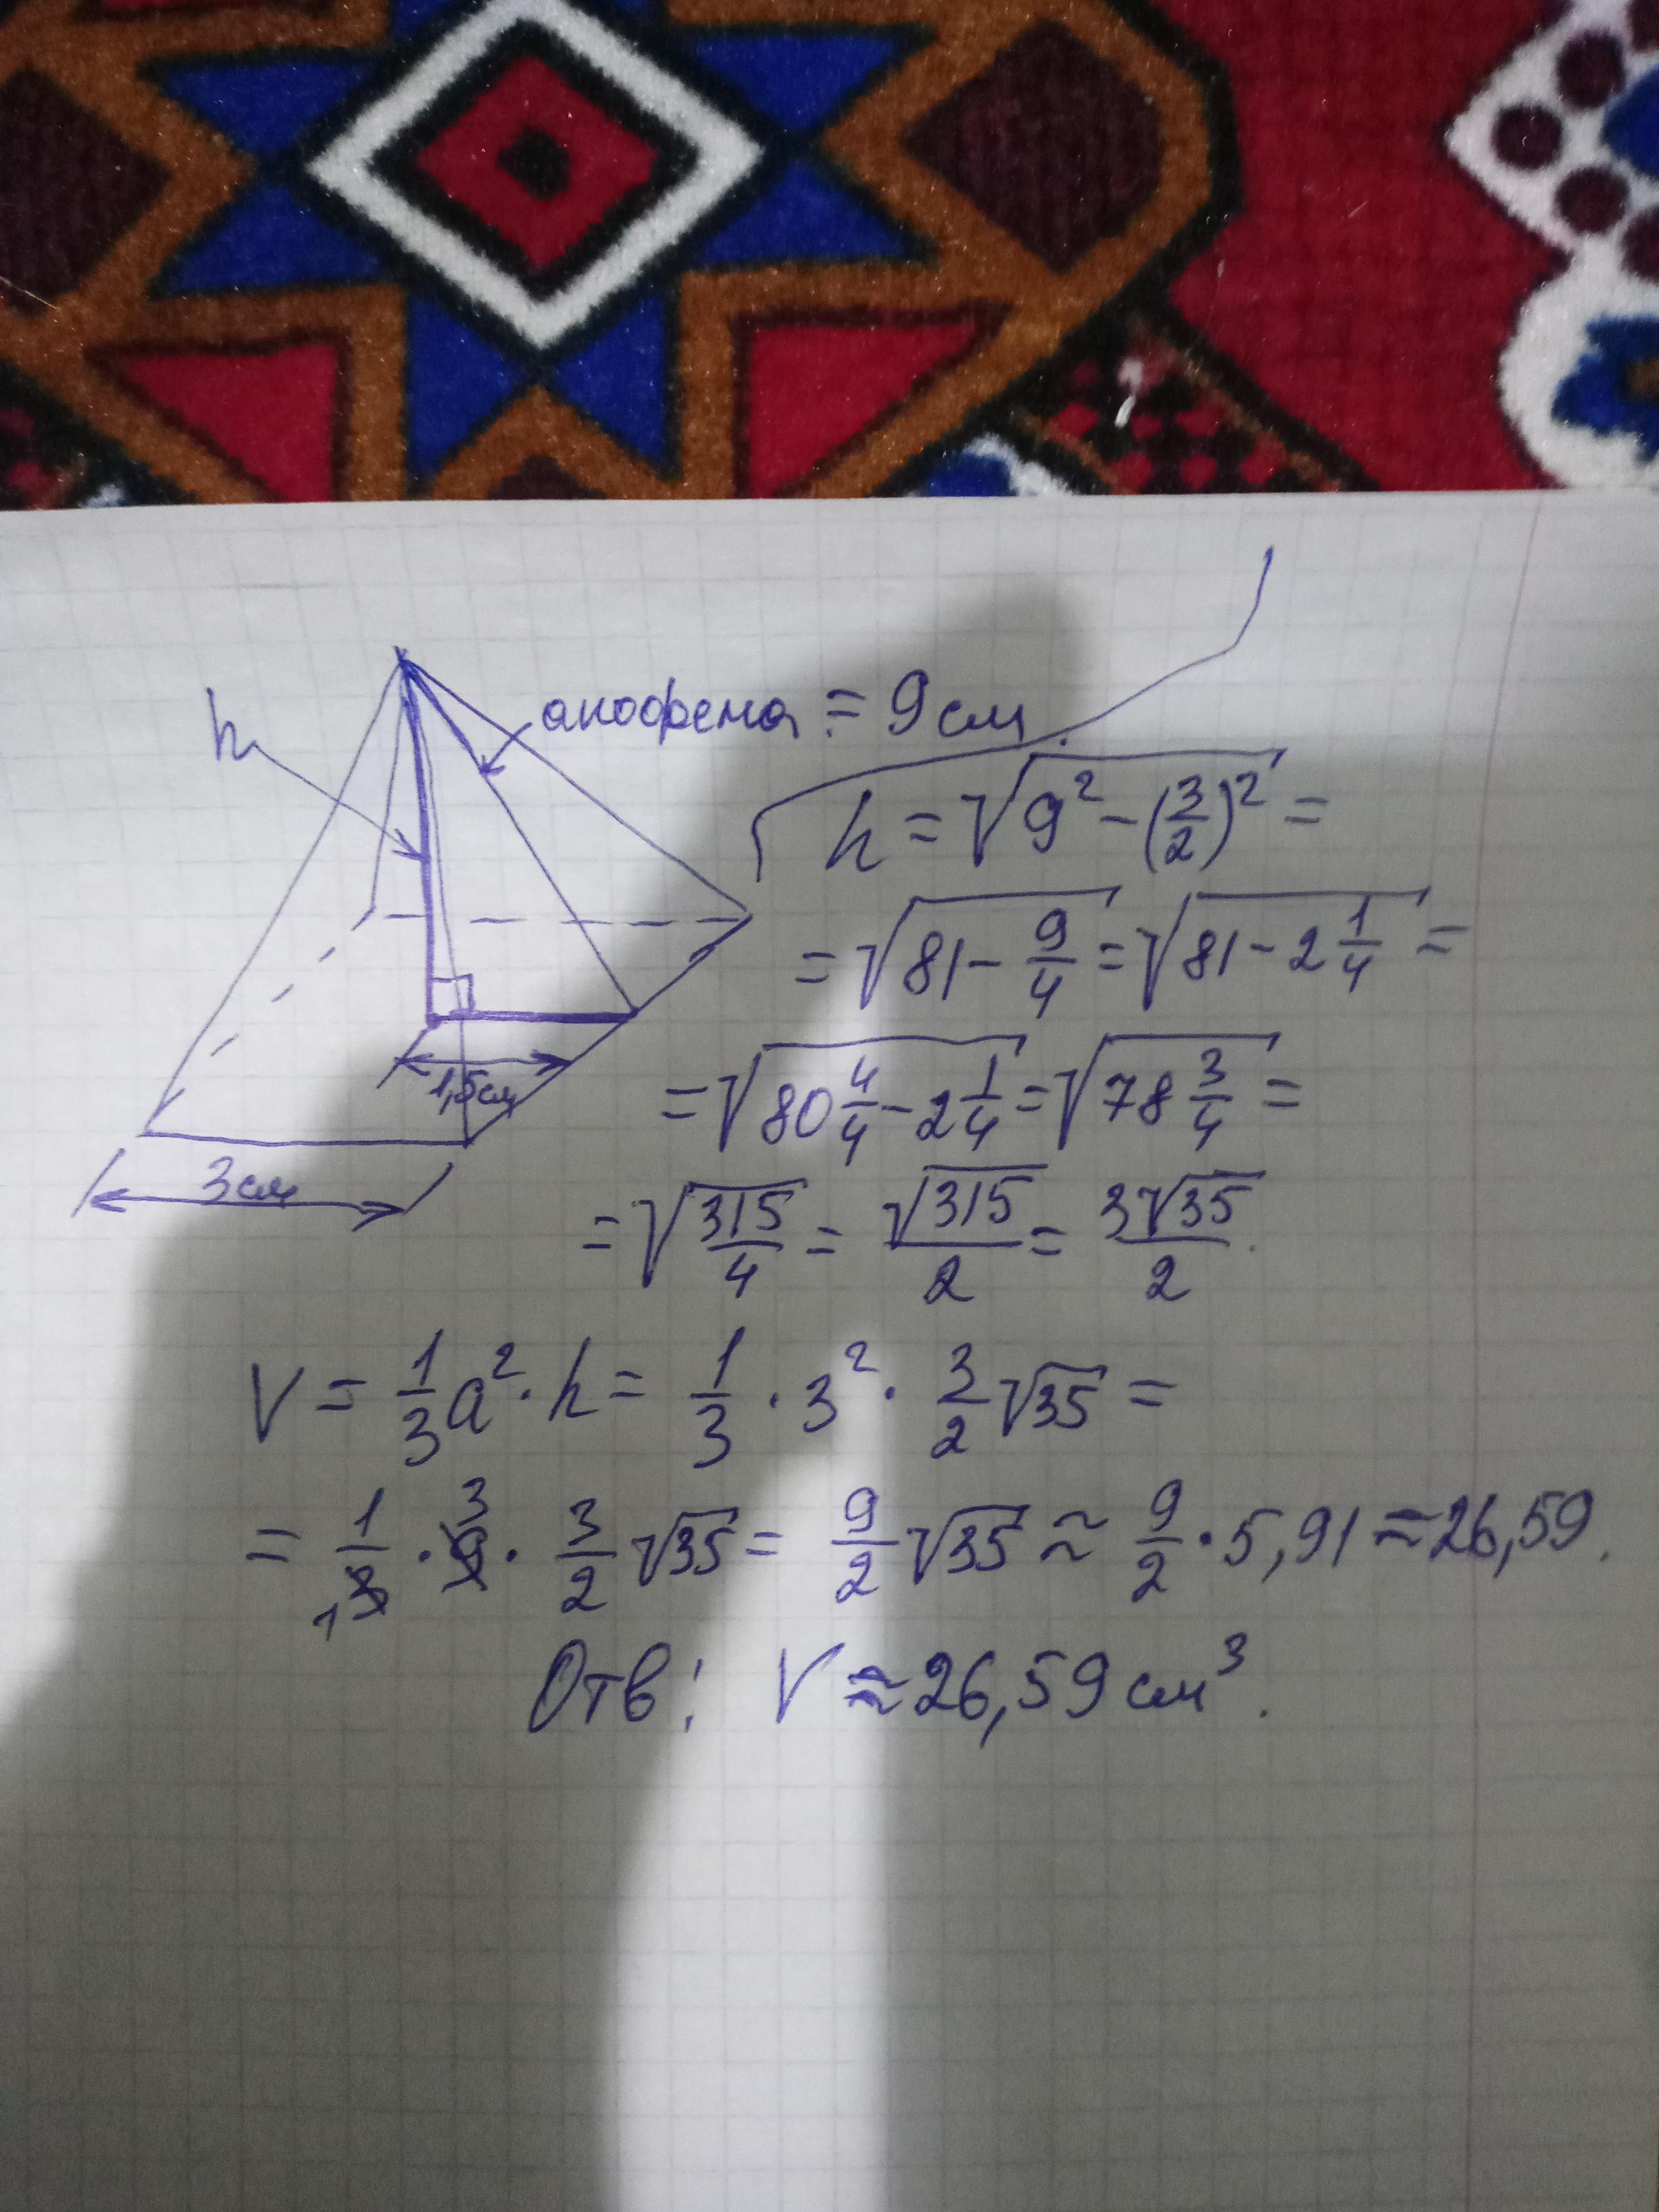 h
апофема = 9 см.
h = √(9² − (3/2)²) =
= √(81 − 9/4) = √(81 − 2 1/4) =
= √(80 4/4 − 2 1/4) = √(78 3/4) =
1,5см
3см
= √(315/4) = √315/2 = 3√35/2.
V = 1/3 a² · h = 1/3 · 3² · 3/2 √35 =
= 1/3 1 · 9 3 · 3/2 √35 = 9/2 √35 ≈ 9/2 · 5,91 ≈ 26,59.
Отв: V ≈ 26,59 см³.